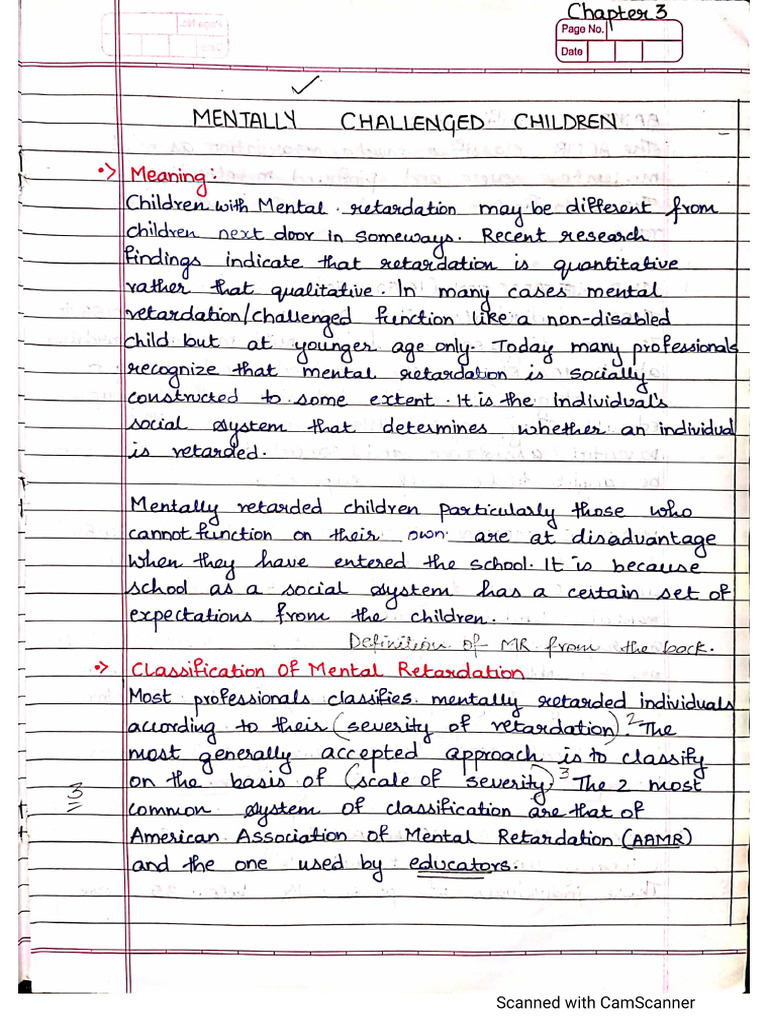 Chapter 3
Page No.
Date
MENTALLY CHALLENGED CHILDREN
Meaning:
Children with Mental retardation may be different from
children next door in someways. Recent research
findings indicate that retardation is quantitative
rather that qualitative. In many cases mental
retardation/challenged function like a non-disabled
child but at younger age only. Today many professionals
recognize that mental retardation is socially
constructed to some extent. It is the Individual's
social system that determines whether an individual
is retarded.
Mentally retarded children particularly those who
cannot function on their own are at disadvantage
when they have entered the school. It is because
school as a social system has a certain set of
expectations from the children.
Definition of MR from the back.
Classification Of Mental Retardation
Most professionals classifies mentally retarded individuals
according to their (severity of retardation).2 The
most generally accepted approach is to classify
on the basis of (scale of severity).3 The 2 most
3
common system of classification are that of
American Association of Mental Retardation (AAMR)
and the one used by educators.
Scanned with CamScanner